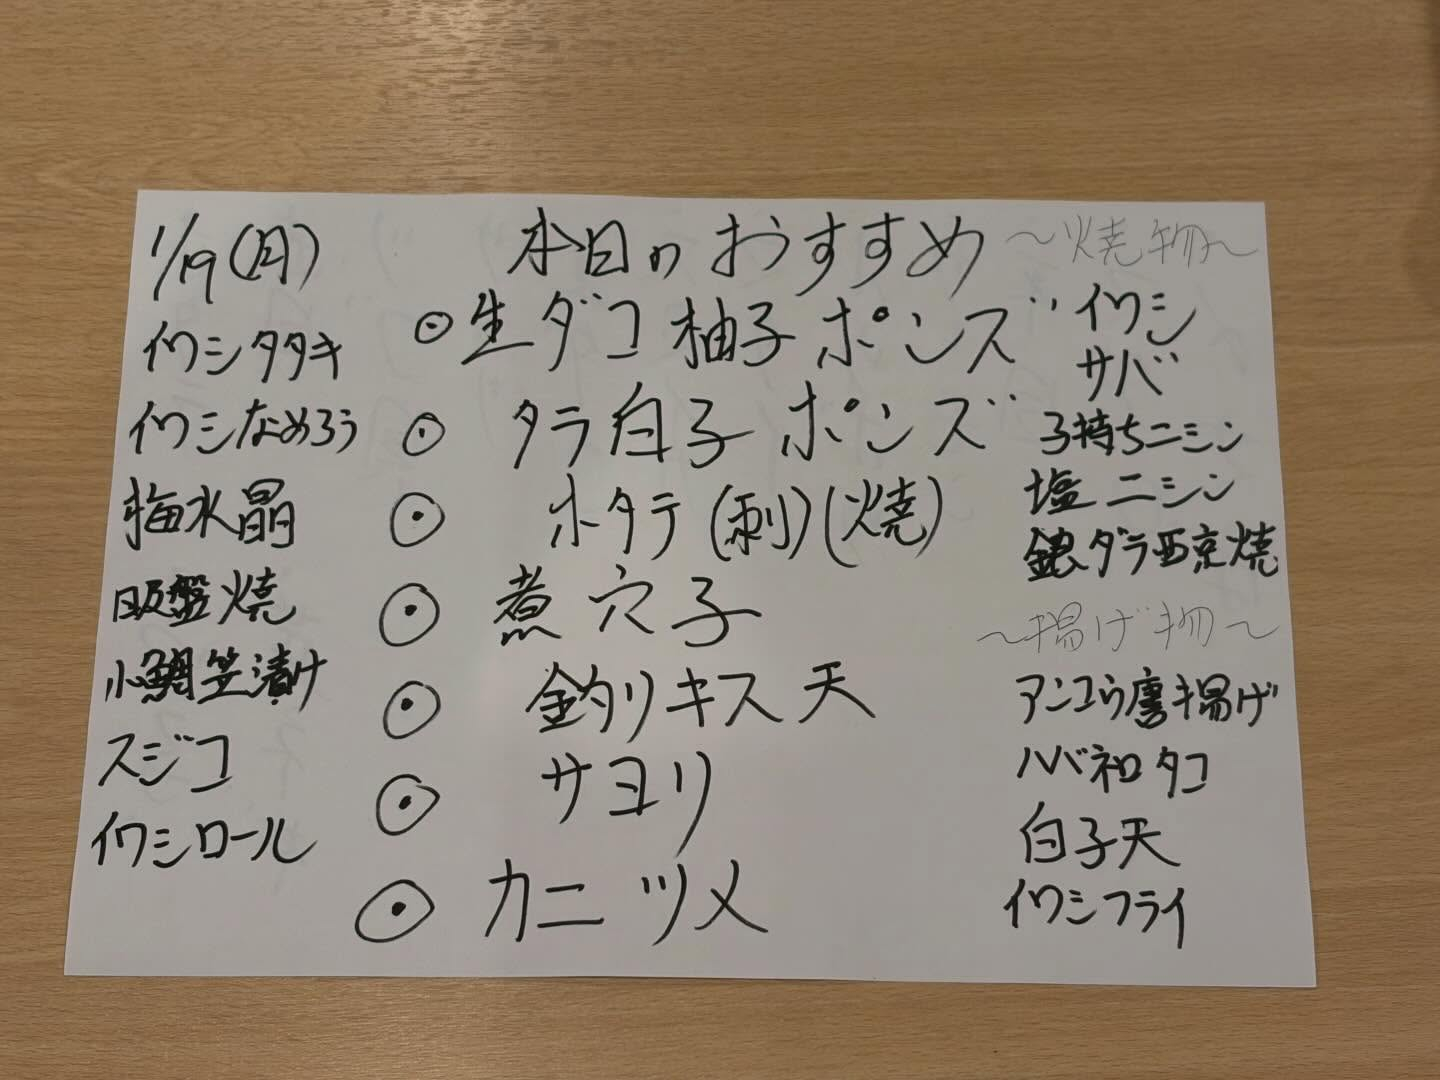 1/19(月)
イワシタタキ
イワシなめろう
梅水晶
吸盤焼
小鯛笠漬け
スジコ
イワシロール
本日のおすすめ
◉生ダコ柚子ポンズ
◉タラ白子ポンズ
◉ホタテ(刺)(焼)
◉煮穴子
◉釣りキス天
◉サヨリ
◉カニツメ
～焼物～
イワシ
サバ
子持ちニシン
塩ニシン
銀ダラ西京焼
～揚げ物～
アンコウ唐揚げ
タコ
白子天
イワシフライ